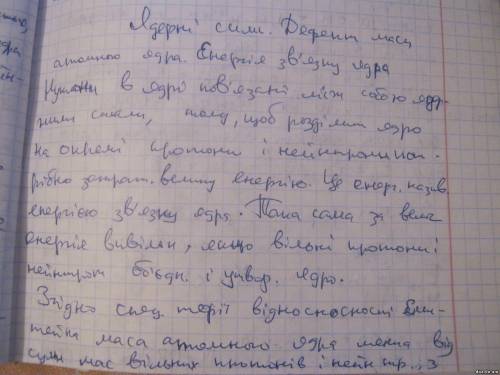 Ядерні сили. Дефект маси
атомного ядра. Енергія зв'язку ядра
Нуклони в ядрі пов'язані між собою ядер-
ними силами, тому, щоб розділити ядро
на окремі протони і нейтрони пот-
рібно затрат. велику енергію. Це енерг. назив.
енергією зв'язку ядра. Така сама за велич
енергія вивільн, якщо вільні протони і
нейтрон обієдн. і утвор. ядро.
Згідно спец теорії відносності Ейн-
тейна маса атомного ядра менша від
суми мас вільних протонів і нейтр.. З